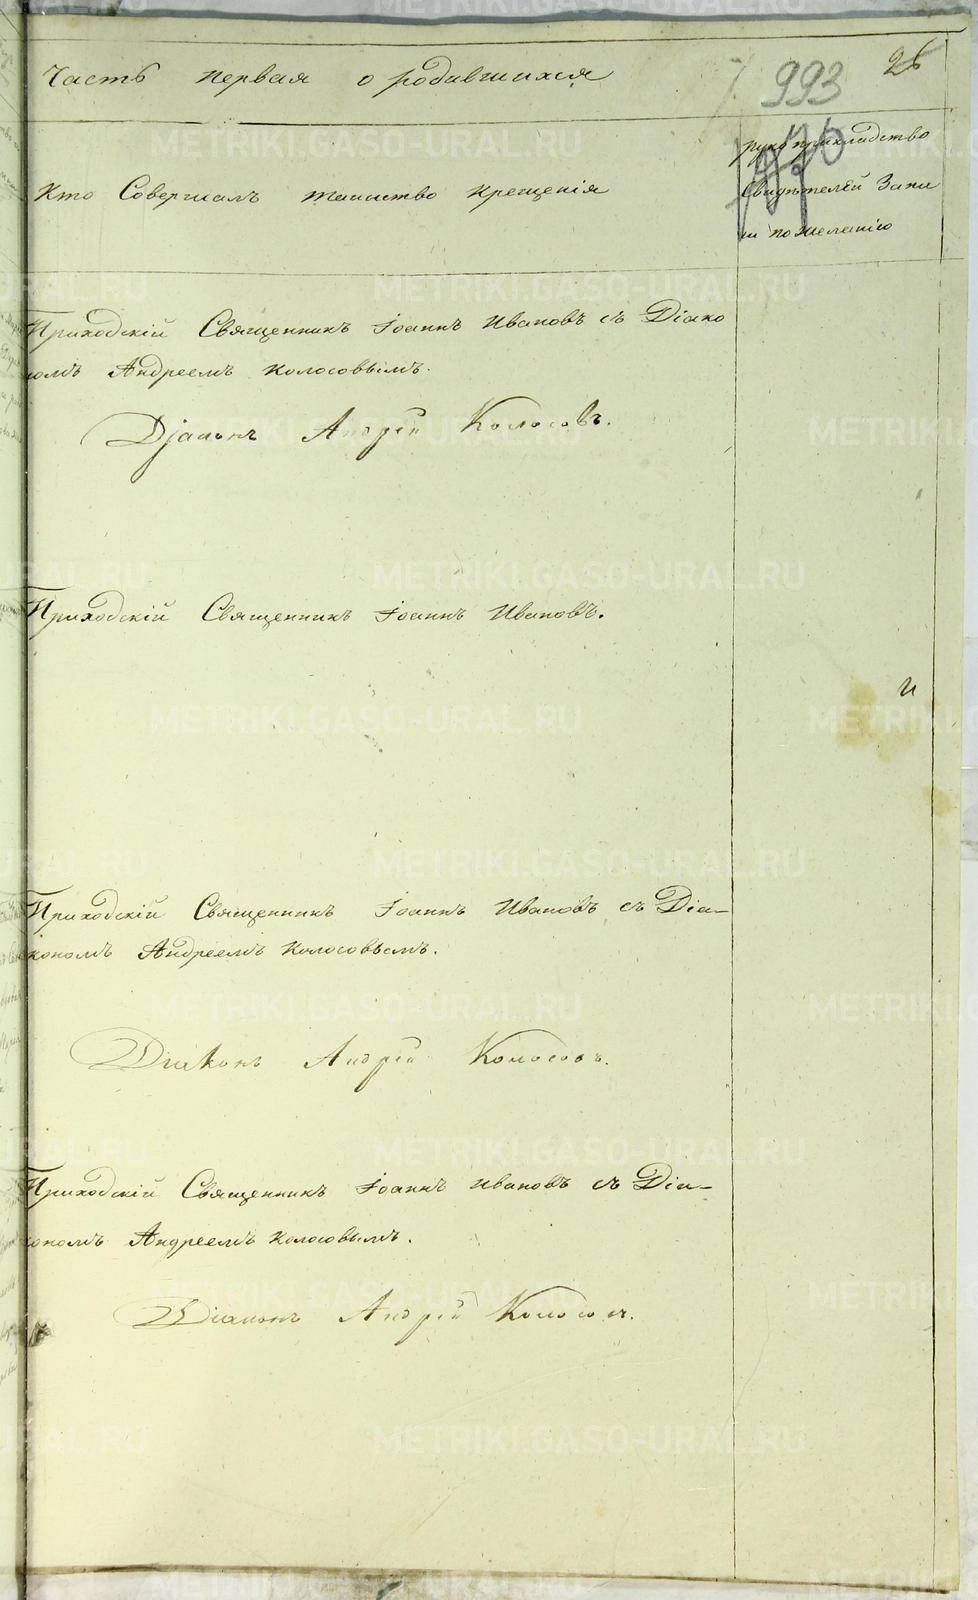 Часть первая о родившихся
993
26
Кто Совершалъ таинство крещенія
рукоприкладство
Свидѣтелей Запи
си по желанію
Приходскій Священникъ Іоаннъ Ивановъ съ Діако
номъ Андреемъ Колосовымъ.
Діаконъ Андрей Колосовъ.
Приходскій Священникъ Іоаннъ Ивановъ.
Приходскій Священникъ Іоаннъ Ивановъ съ Діа-
кономъ Андреемъ Колосовымъ.
Діаконъ Андрей Колосовъ.
Приходскій Священникъ Іоаннъ Ивановъ съ Діа-
кономъ Андреемъ Колосовымъ.
Діаконъ Андрей Колосовъ.
METRIKI.GASO-URAL.RU